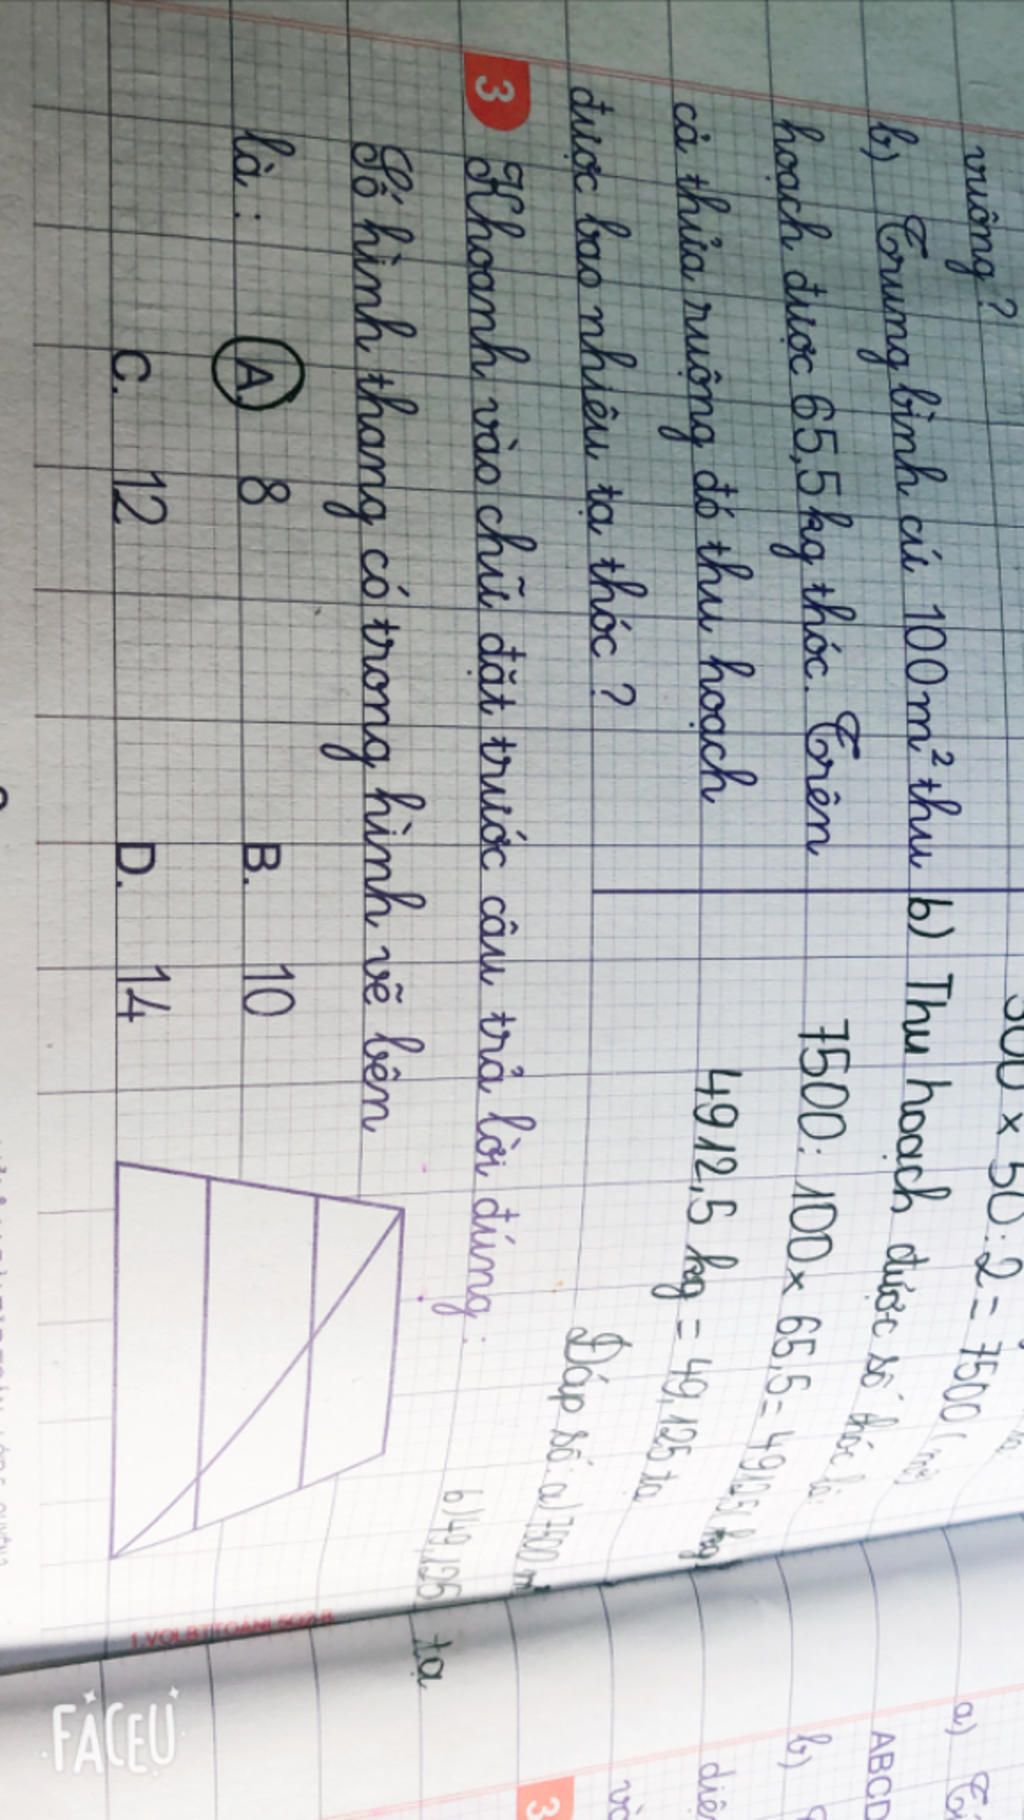 vuông?
300 x 50 : 2 = 7500 (m²)
b) Trung bình cứ 100m² thu
hoạch được 65,5kg thóc. Trên
cả thửa ruộng đó thu hoạch
được bao nhiêu tạ thóc?
b) Thu hoạch được số thóc là:
7500 : 100 x 65,5 = 4912,5 (kg)
4912,5 kg = 49,125 tạ
Đáp số: a) 7500 m²
b) 49,125 tạ
3 Khoanh vào chữ đặt trước câu trả lời đúng:
Số hình thang có trong hình vẽ bên
là: A. 8 B. 10
C. 12 D. 14
a)
ABCD
b)
3
FACEU